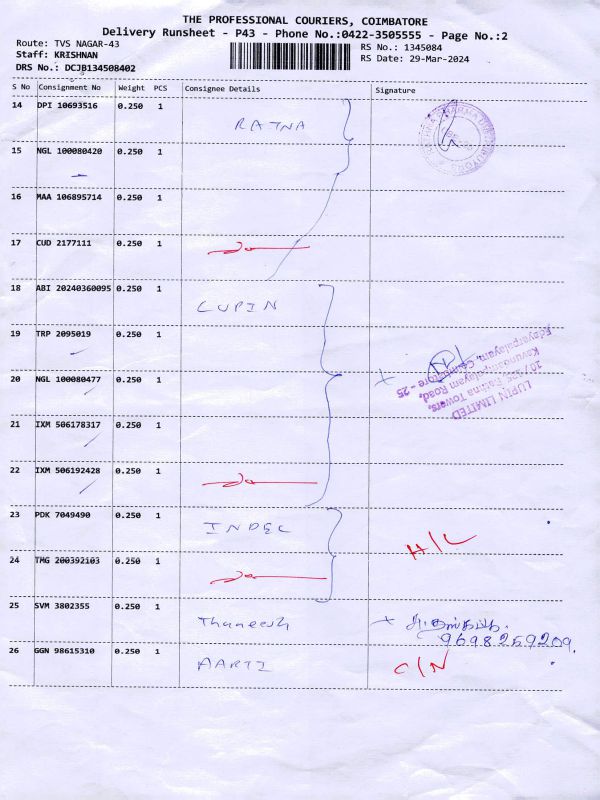 THE PROFESSIONAL COURIERS, COIMBATORE
Delivery Runsheet - P43 - Phone No.:0422-3505555 - Page No.:2
Route: TVS NAGAR-43
Staff: KRISHNAN
DRS No.: DCJB134508402
RS No.: 1345084
RS Date: 29-Mar-2024
S No Consignment No Weight PCS Consignee Details Signature
14 DPI 10693516 0.250 1 RATNA
15 NGL 100080420 0.250 1
16 MAA 106895714 0.250 1
17 CUD 2177111 0.250 1
18 ABI 20240360095 0.250 1 LUPIN
19 TRP 2095019 0.250 1
20 NGL 100080477 0.250 1
LUPIN LIMITED
Towers,
Kavundampalayam Road,
Edayarpalayam, Coimbatore - 25
21 IXM 506178317 0.250 1
22 IXM 506192428 0.250 1
23 PDK 7049490 0.250 1 INDEC
24 TMG 200392103 0.250 1
H/L
25 SVM 3802355 0.250 1 Thaneesh
9698259209.
26 GGN 98615310 0.250 1 AARTI C/N